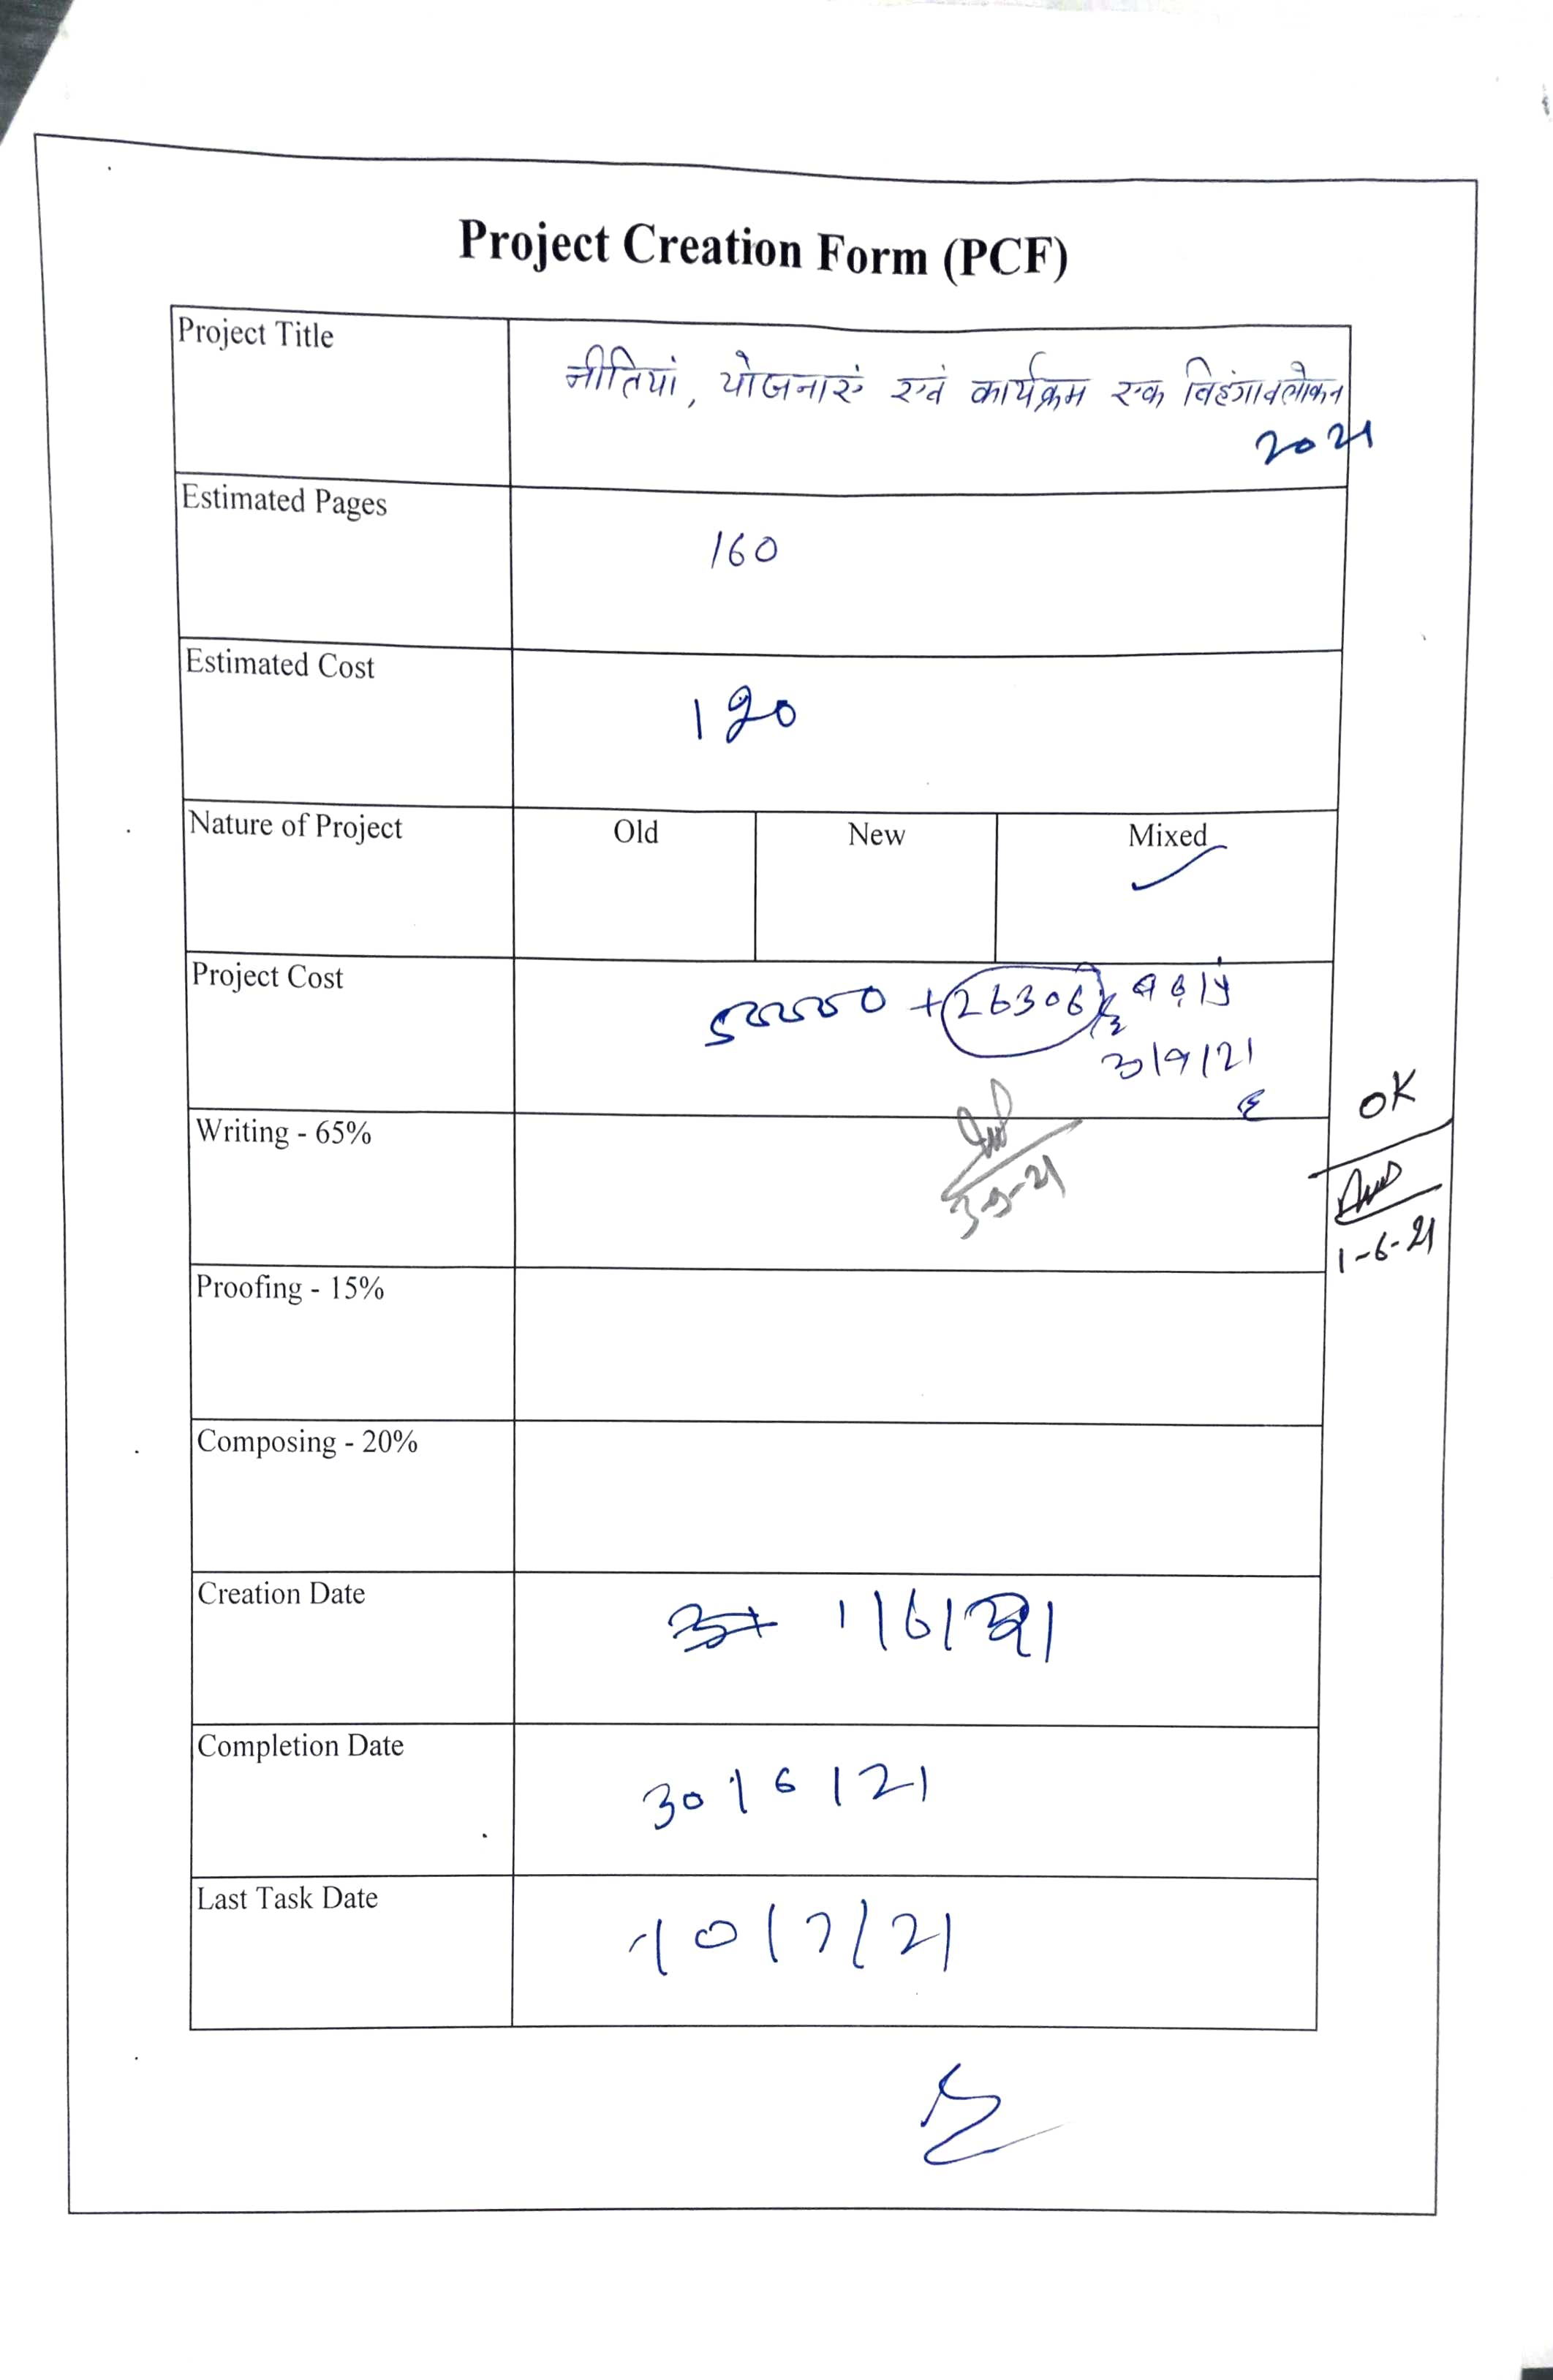 Project Creation Form (PCF)
Project Title
नीतियां, योजनाएं एवं कार्यक्रम एक विहंगावलोकन
2021
Estimated Pages
160
Estimated Cost
120
Nature of Project Old New Mixed
Project Cost
+ 26306
3/9/21
OK
Writing - 65%
3-9-21
1-6-21
Proofing - 15%
Composing - 20%
Creation Date
1/6/21
Completion Date
30/6/21
Last Task Date
10/7/21